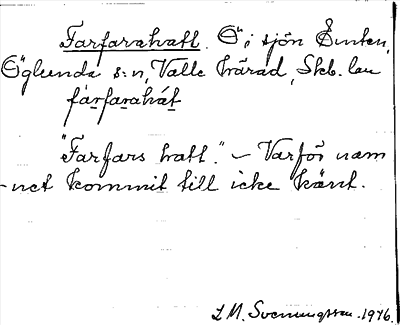 Farfarahatt. Ö i sjön Emten,
Öglunda s:n, Valle härad, Skb. län
fàrfarahát
"Farfars hatt." – Varför nam-
net kommit till icke känt.
S. M. Svenungsson. 1916.